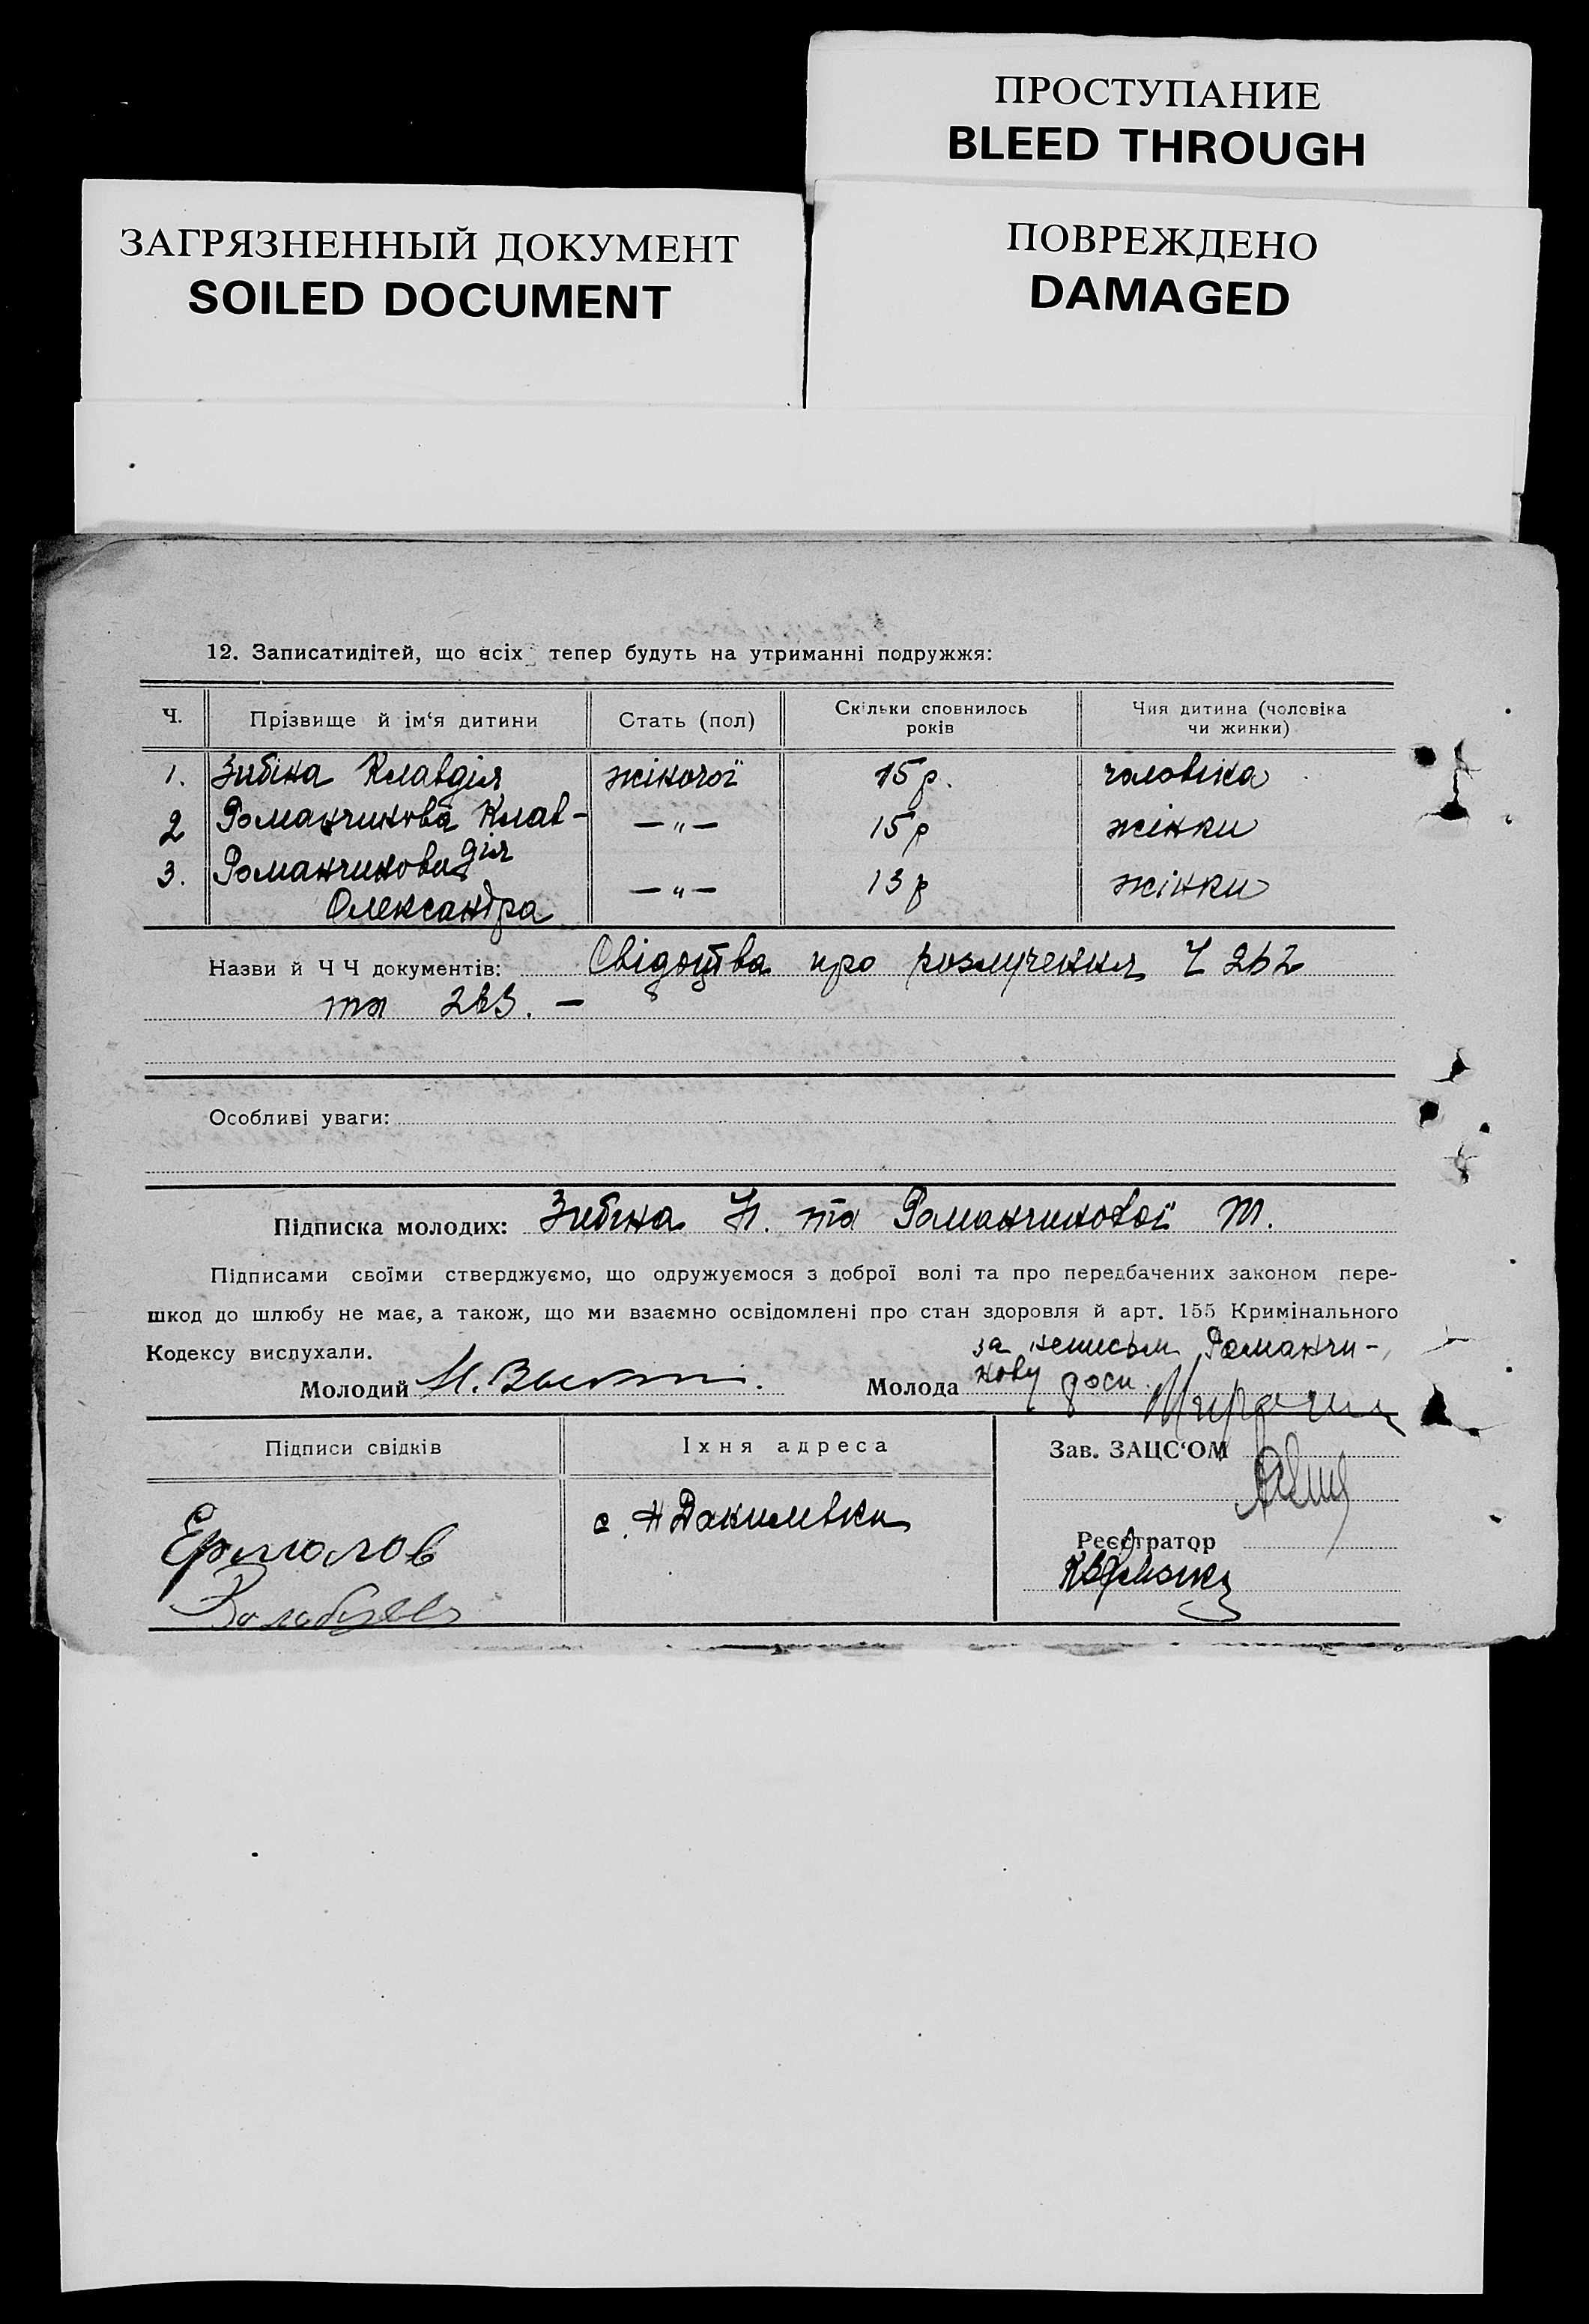 ПРОСТУПАНИЕ
BLEED THROUGH
ЗАГРЯЗНЕННЫЙ ДОКУМЕНТ
SOILED DOCUMENT
ПОВРЕЖДЕНО
DAMAGED
12. Записатидітей, що всіх тепер будуть на утриманні подружжя:
Ч. Прізвище й ім‘я дитини Стать (пол) Скільки сповнилось років Чия дитина (чоловіка чи жинки)
1. Зибіна Клавдія жіночої 15 р. чоловіка
2 Романчикова Клав-дія —"— 15 р жінки
3. Романчикова Олександра —"— 13 р жінки
Назви й Ч Ч документів: Свідоцтва про розлучення Ч 262
та 263. —
Особливі уваги:
Підписка молодих: Зибіна Н. та Романчикової М.
Підписами своїми стверджуємо, що одружуємося з доброї волі та про передбачених законом пере-
шкод до шлюбу не має, а також, що ми взаємно освідомлені про стан здоровля й арт. 155 Кримінального
Кодексу вислухали.
за неписьм Романчи-
Молодий Молода кову
Підписи свідків Їхня адреса Зав. ЗАЦС‘ОМ
Ермолов с.
Реєстратор